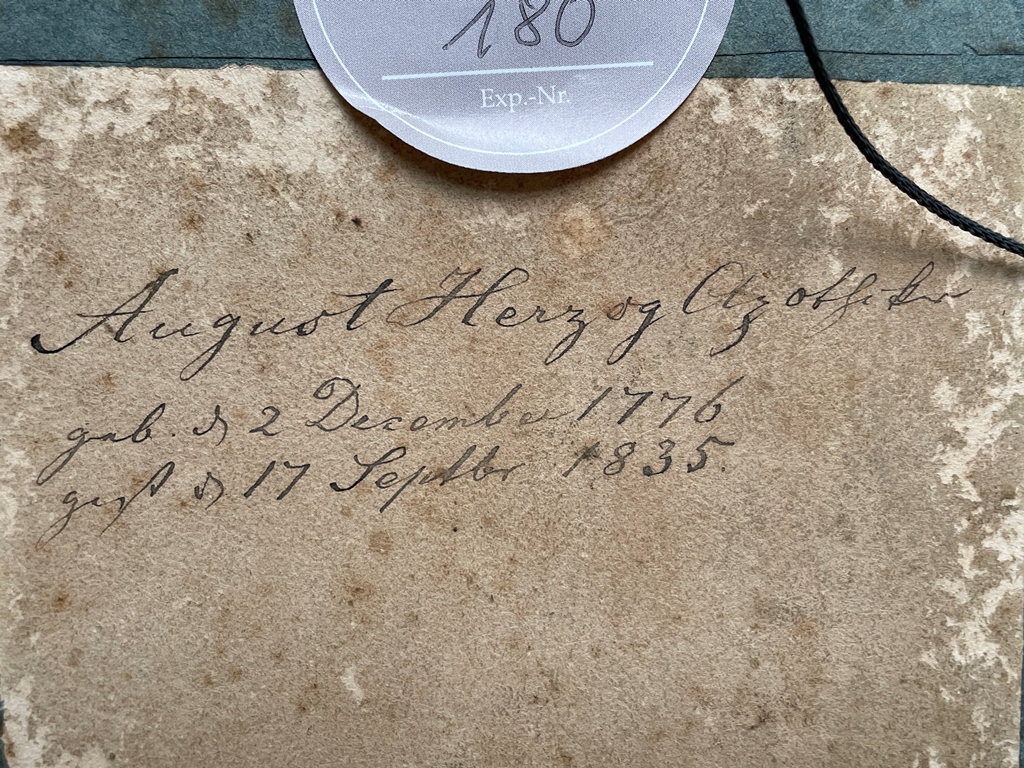 180
Exp.-Nr.
August Herzog Apotheker
geb. d 2 December 1776
gest d 17 Septbr 1835.